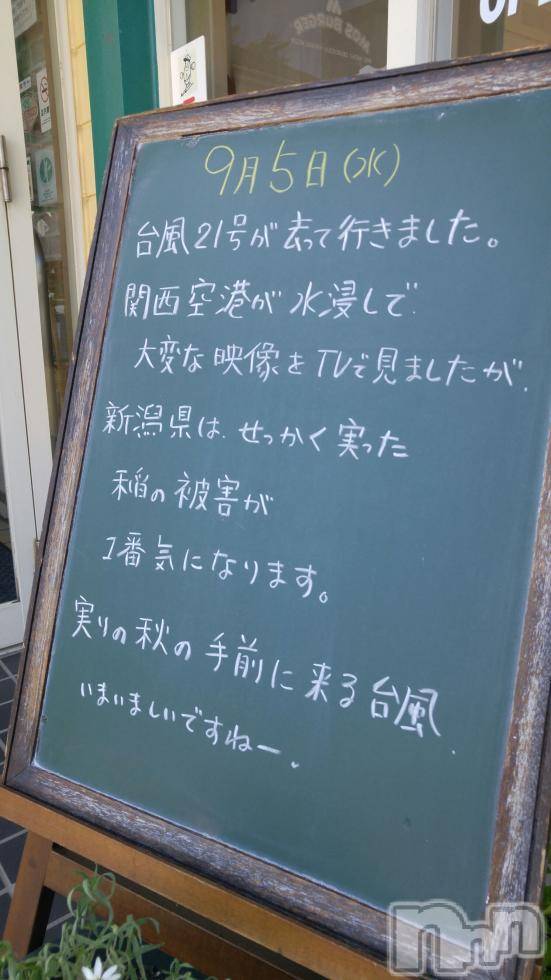 MOS BURGER
9月5日(水)
台風21号が去って行きました。
関西空港が水浸しで
大変な映像をTVで見ましたが、
新潟県は、せっかく実った
稲の被害が
1番気になります。
実りの秋の手前に来る台風、
いまいましいですねー。
nnn